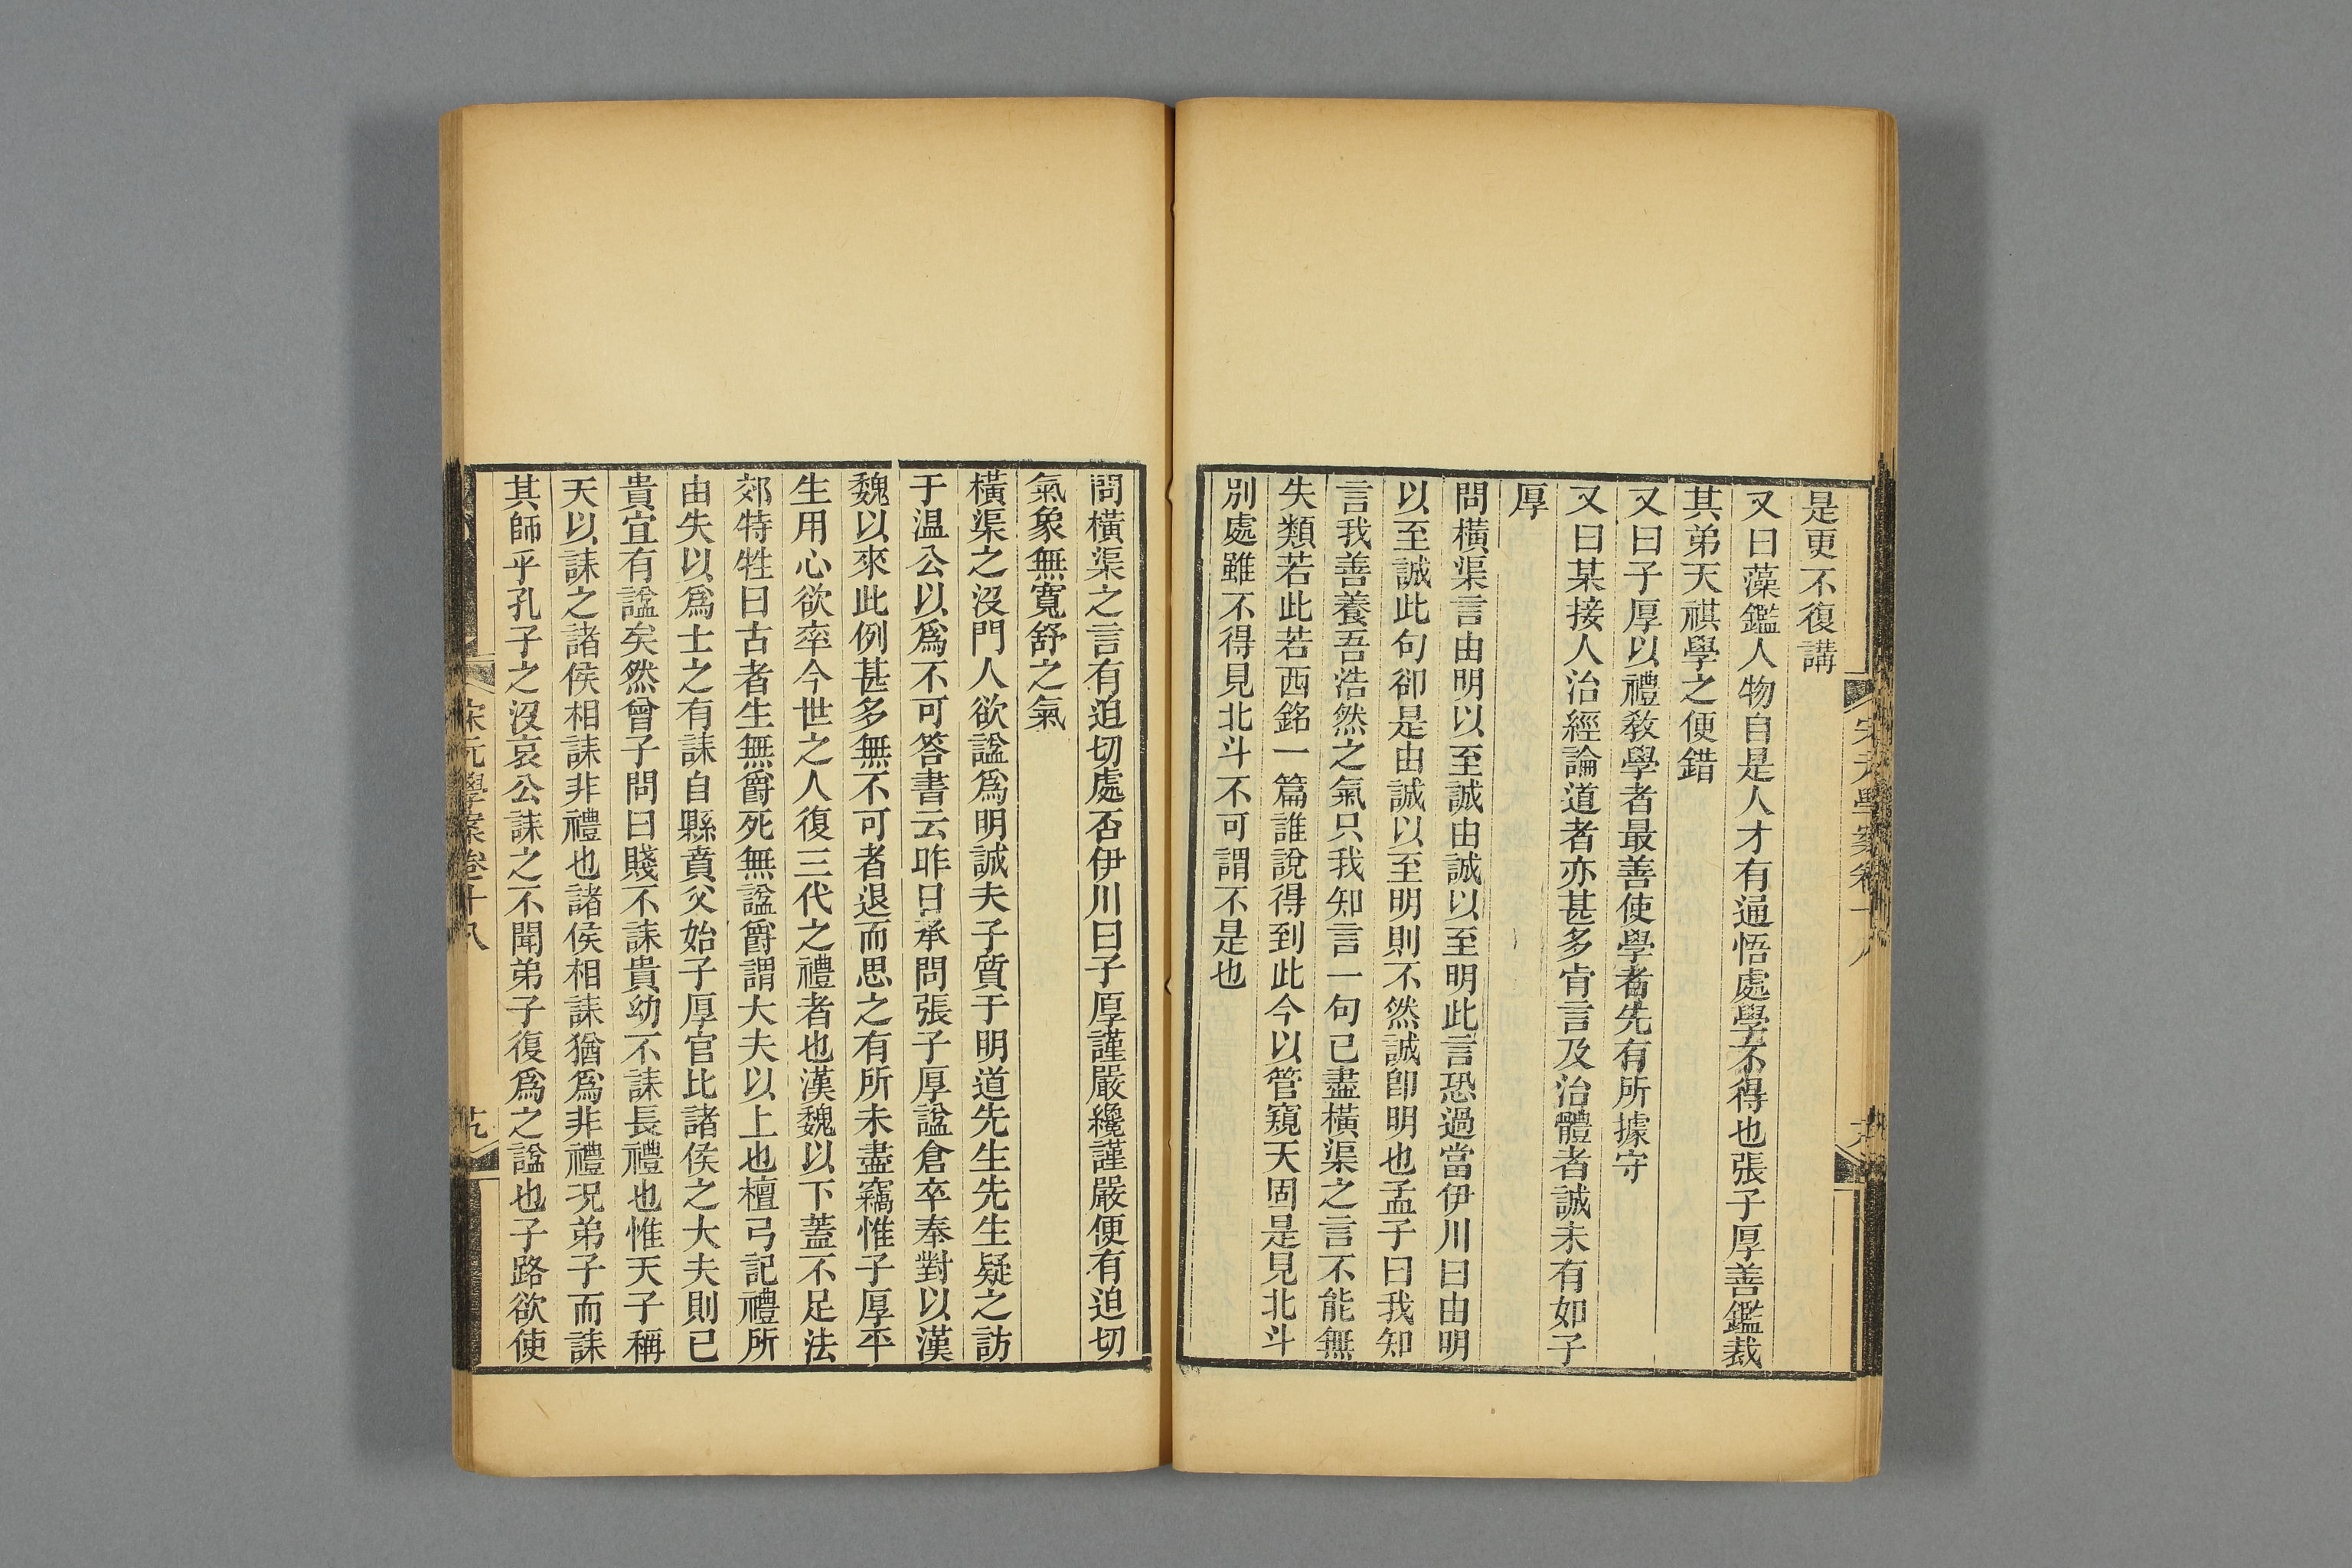 是更不復講
又曰藻鑑人物自是人才有通悟處學不得也張子厚善鑑裁
其弟天祺學之便錯
又曰子厚以禮教學者最善使學者先有所據守
又曰某接人治經論道者亦甚多肯言及治體者誠未有如子
厚
問橫渠言由明以至誠由誠以至明此言恐過當伊川曰由明
以至誠此句卻是由誠以至明則不然誠卽明也孟子曰我知
言我善養吾浩然之氣只我知言一句已盡橫渠之言不能無
失類若此若西銘一篇誰說得到此今以管窺天固是見北斗
別處雖不得見北斗不可謂不是也
問橫渠之言有迫切處否伊川曰子厚謹嚴纔謹嚴便有迫切
氣象無寬舒之氣
橫渠之沒門人欲諡爲明誠夫子質于明道先生先生疑之訪
于温公以爲不可答書云昨日承問張子厚諡倉卒奉對以漢
魏以來此例甚多無不可者退而思之有所未盡竊惟子厚平
生用心欲率今世之人復三代之禮者也漢魏以下蓋不足法
郊特牲曰古者生無爵死無諡爵謂大夫以上也檀弓記禮所
由失以爲士之有誄自縣賁父始子厚官比諸侯之大夫則已
貴宜有諡矣然曾子問曰賤不誄貴幼不誄長禮也惟天子稱
天以誄之諸侯相誄非禮也諸侯相誄猶爲非禮況弟子而誄
其師乎孔子之沒哀公誄之不聞弟子復爲之諡也子路欲使
宋元學案卷十八